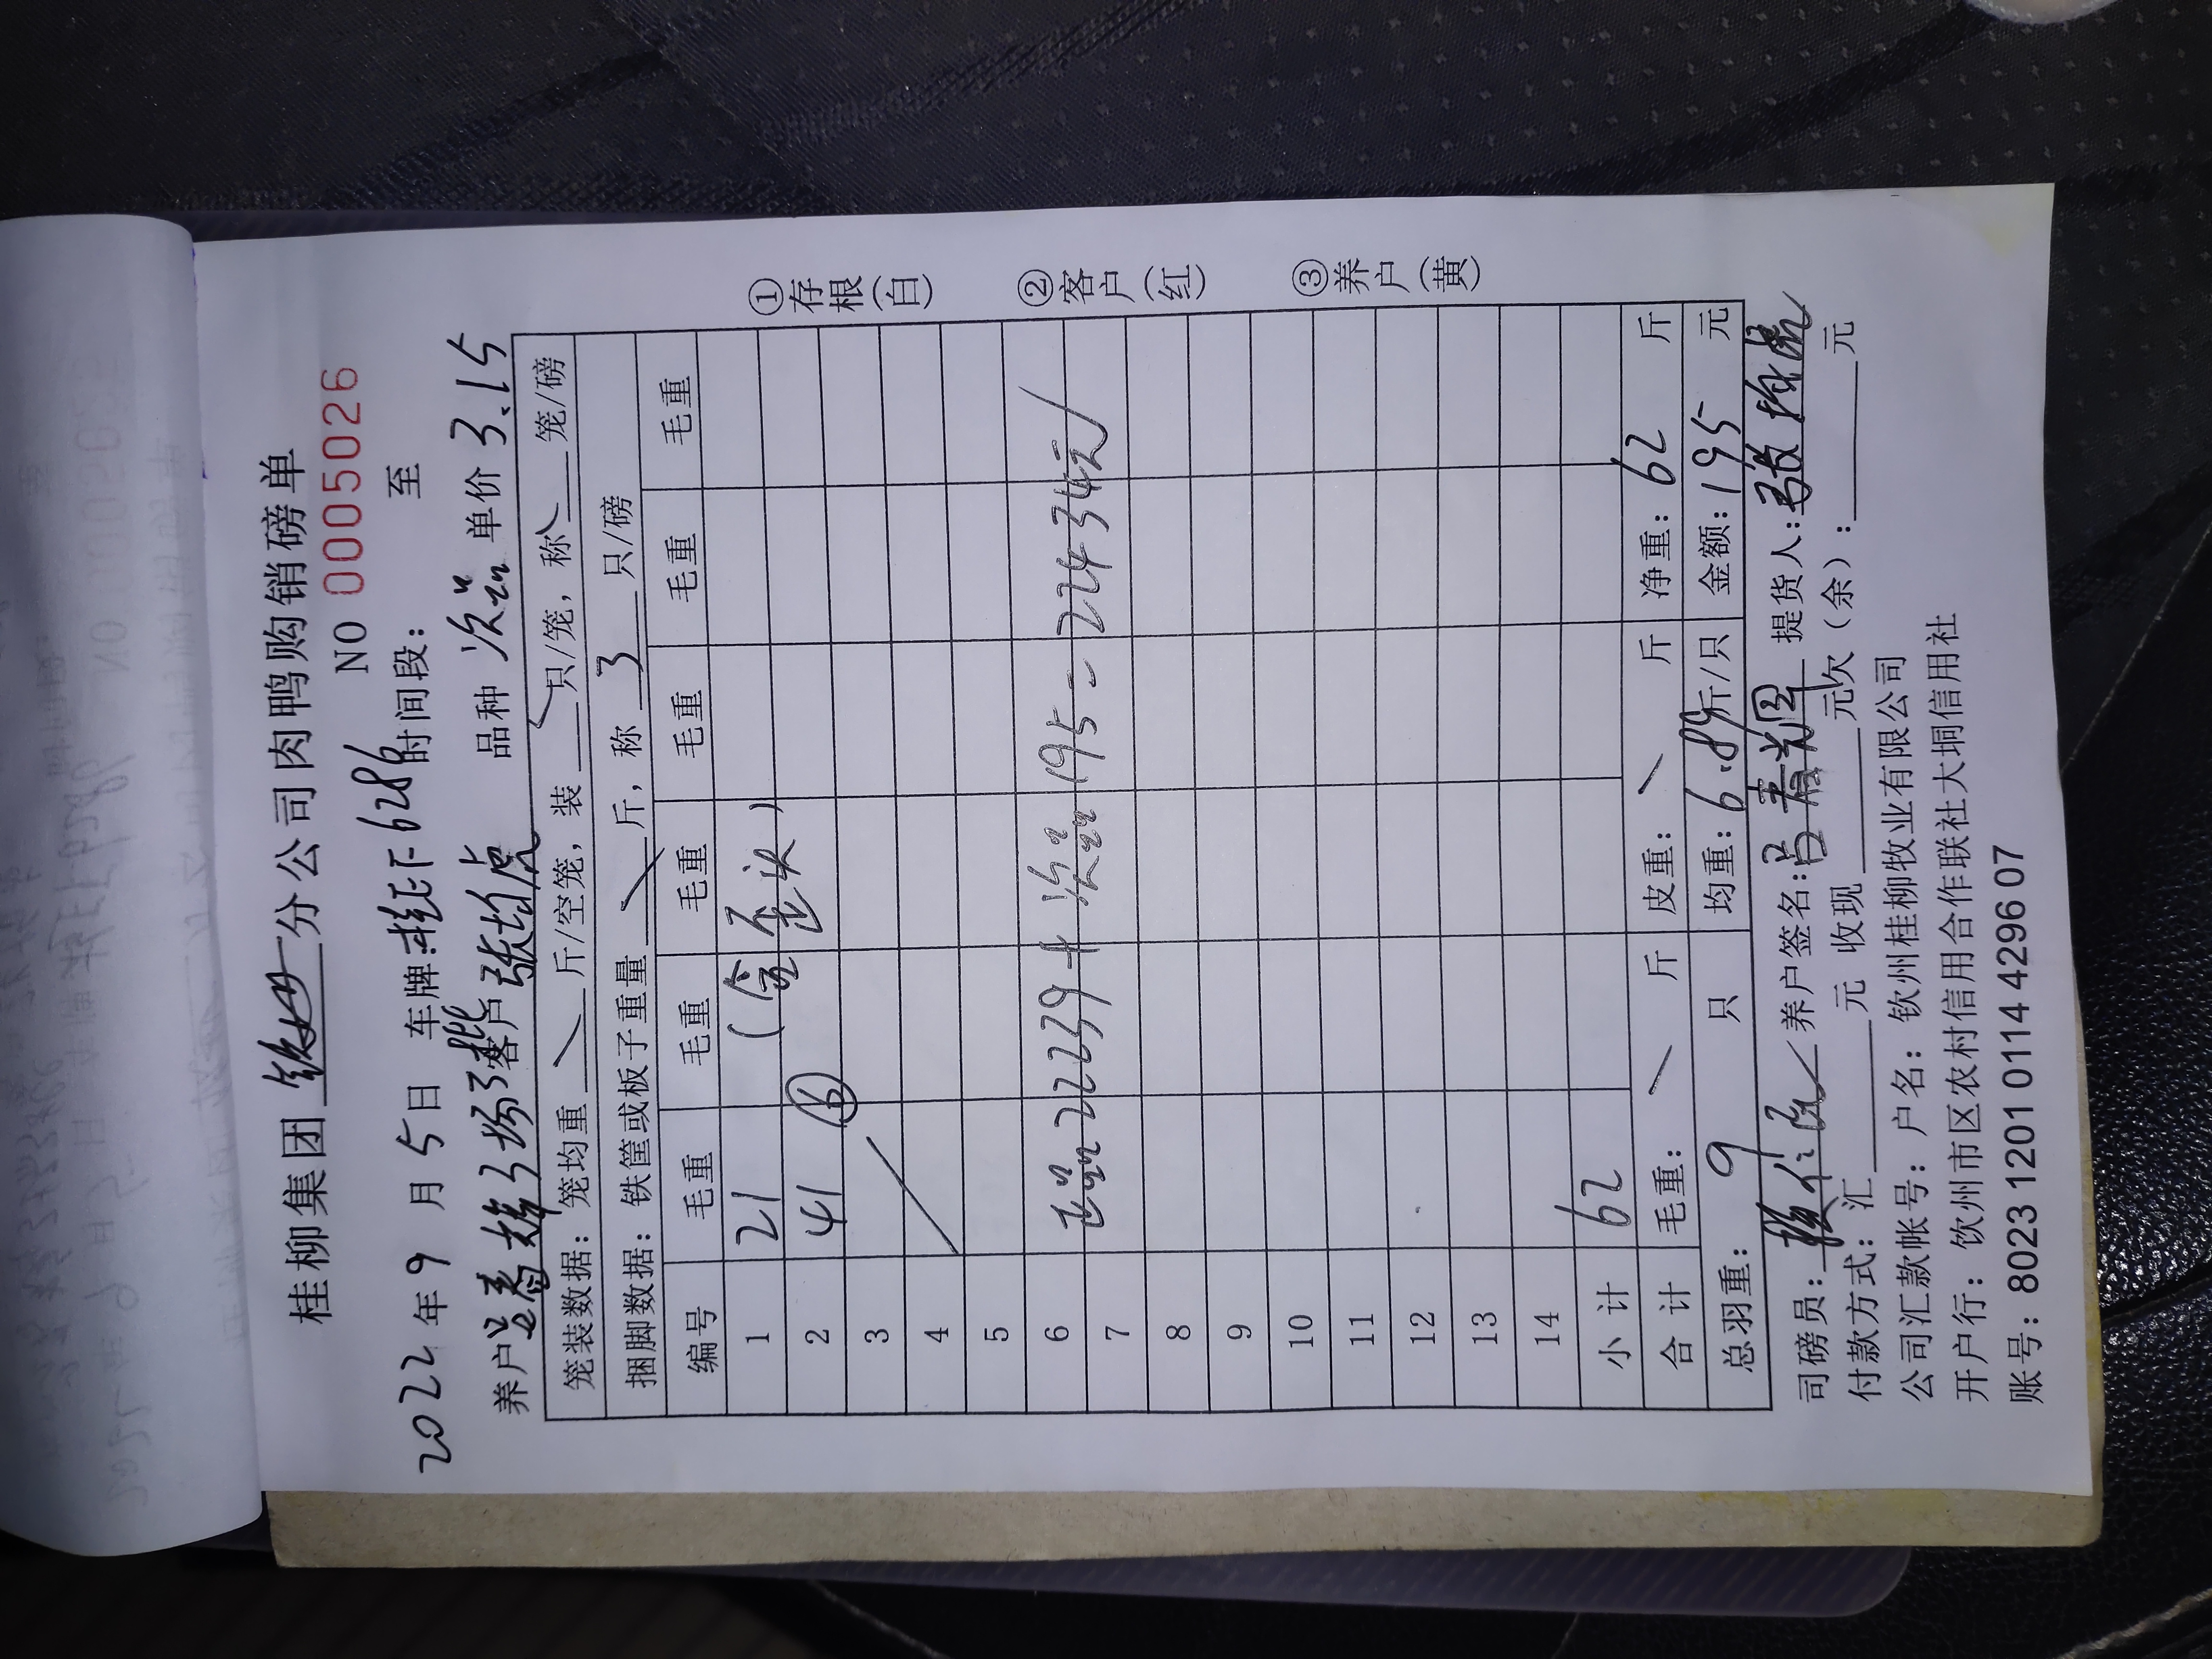 桂柳集团 钦州 分公司肉鸭购销磅单
NO 0005026
2022年9月5日 车牌:桂F6286 时间段: 至
养户 客户 张 品种 次品 单价 3.15
笼装数据:笼均重 斤/空笼,装 只/笼,称 笼/磅
捆脚数据:铁筐或板子重量 斤,称 3 只/磅
编号 毛重 毛重 毛重 毛重 毛重 毛重
1 21 (含歪头)
2 41 ⑥
3
4
5
6
7
正品22239+次品195=22434元
8
9
10
11
12
13
14
小计 62
合计 毛重: 斤 皮重: 斤 净重:62 斤
总羽重: 9 只 均重:6.89斤/只 金额:195 元
司磅员: 养户签名: 提货人:
付款方式:汇 元 收现 元欠(余): 元
公司汇款帐号:户名: 钦州桂柳牧业有限公司
开户行:钦州市区农村信用合作联社大垌信用社
账号:8023 1201 0114 4296 07
①存根(白)
②客户(红)
③养户(黄)